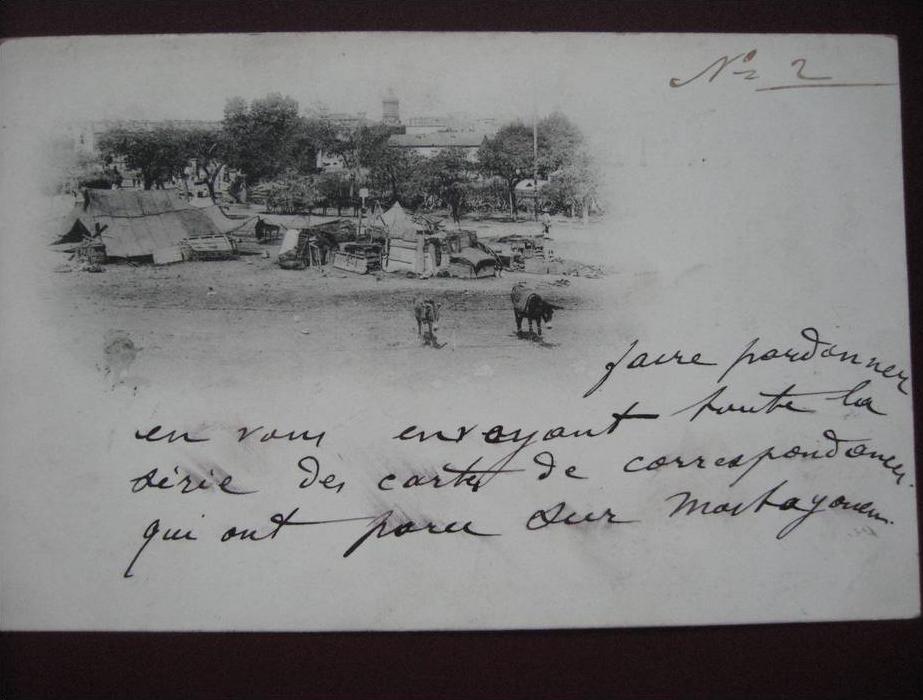 N° 2
faire pardonner
en vous envoyant toute la
série des cartes de correspondances
qui ont paru sur Mostaganem.